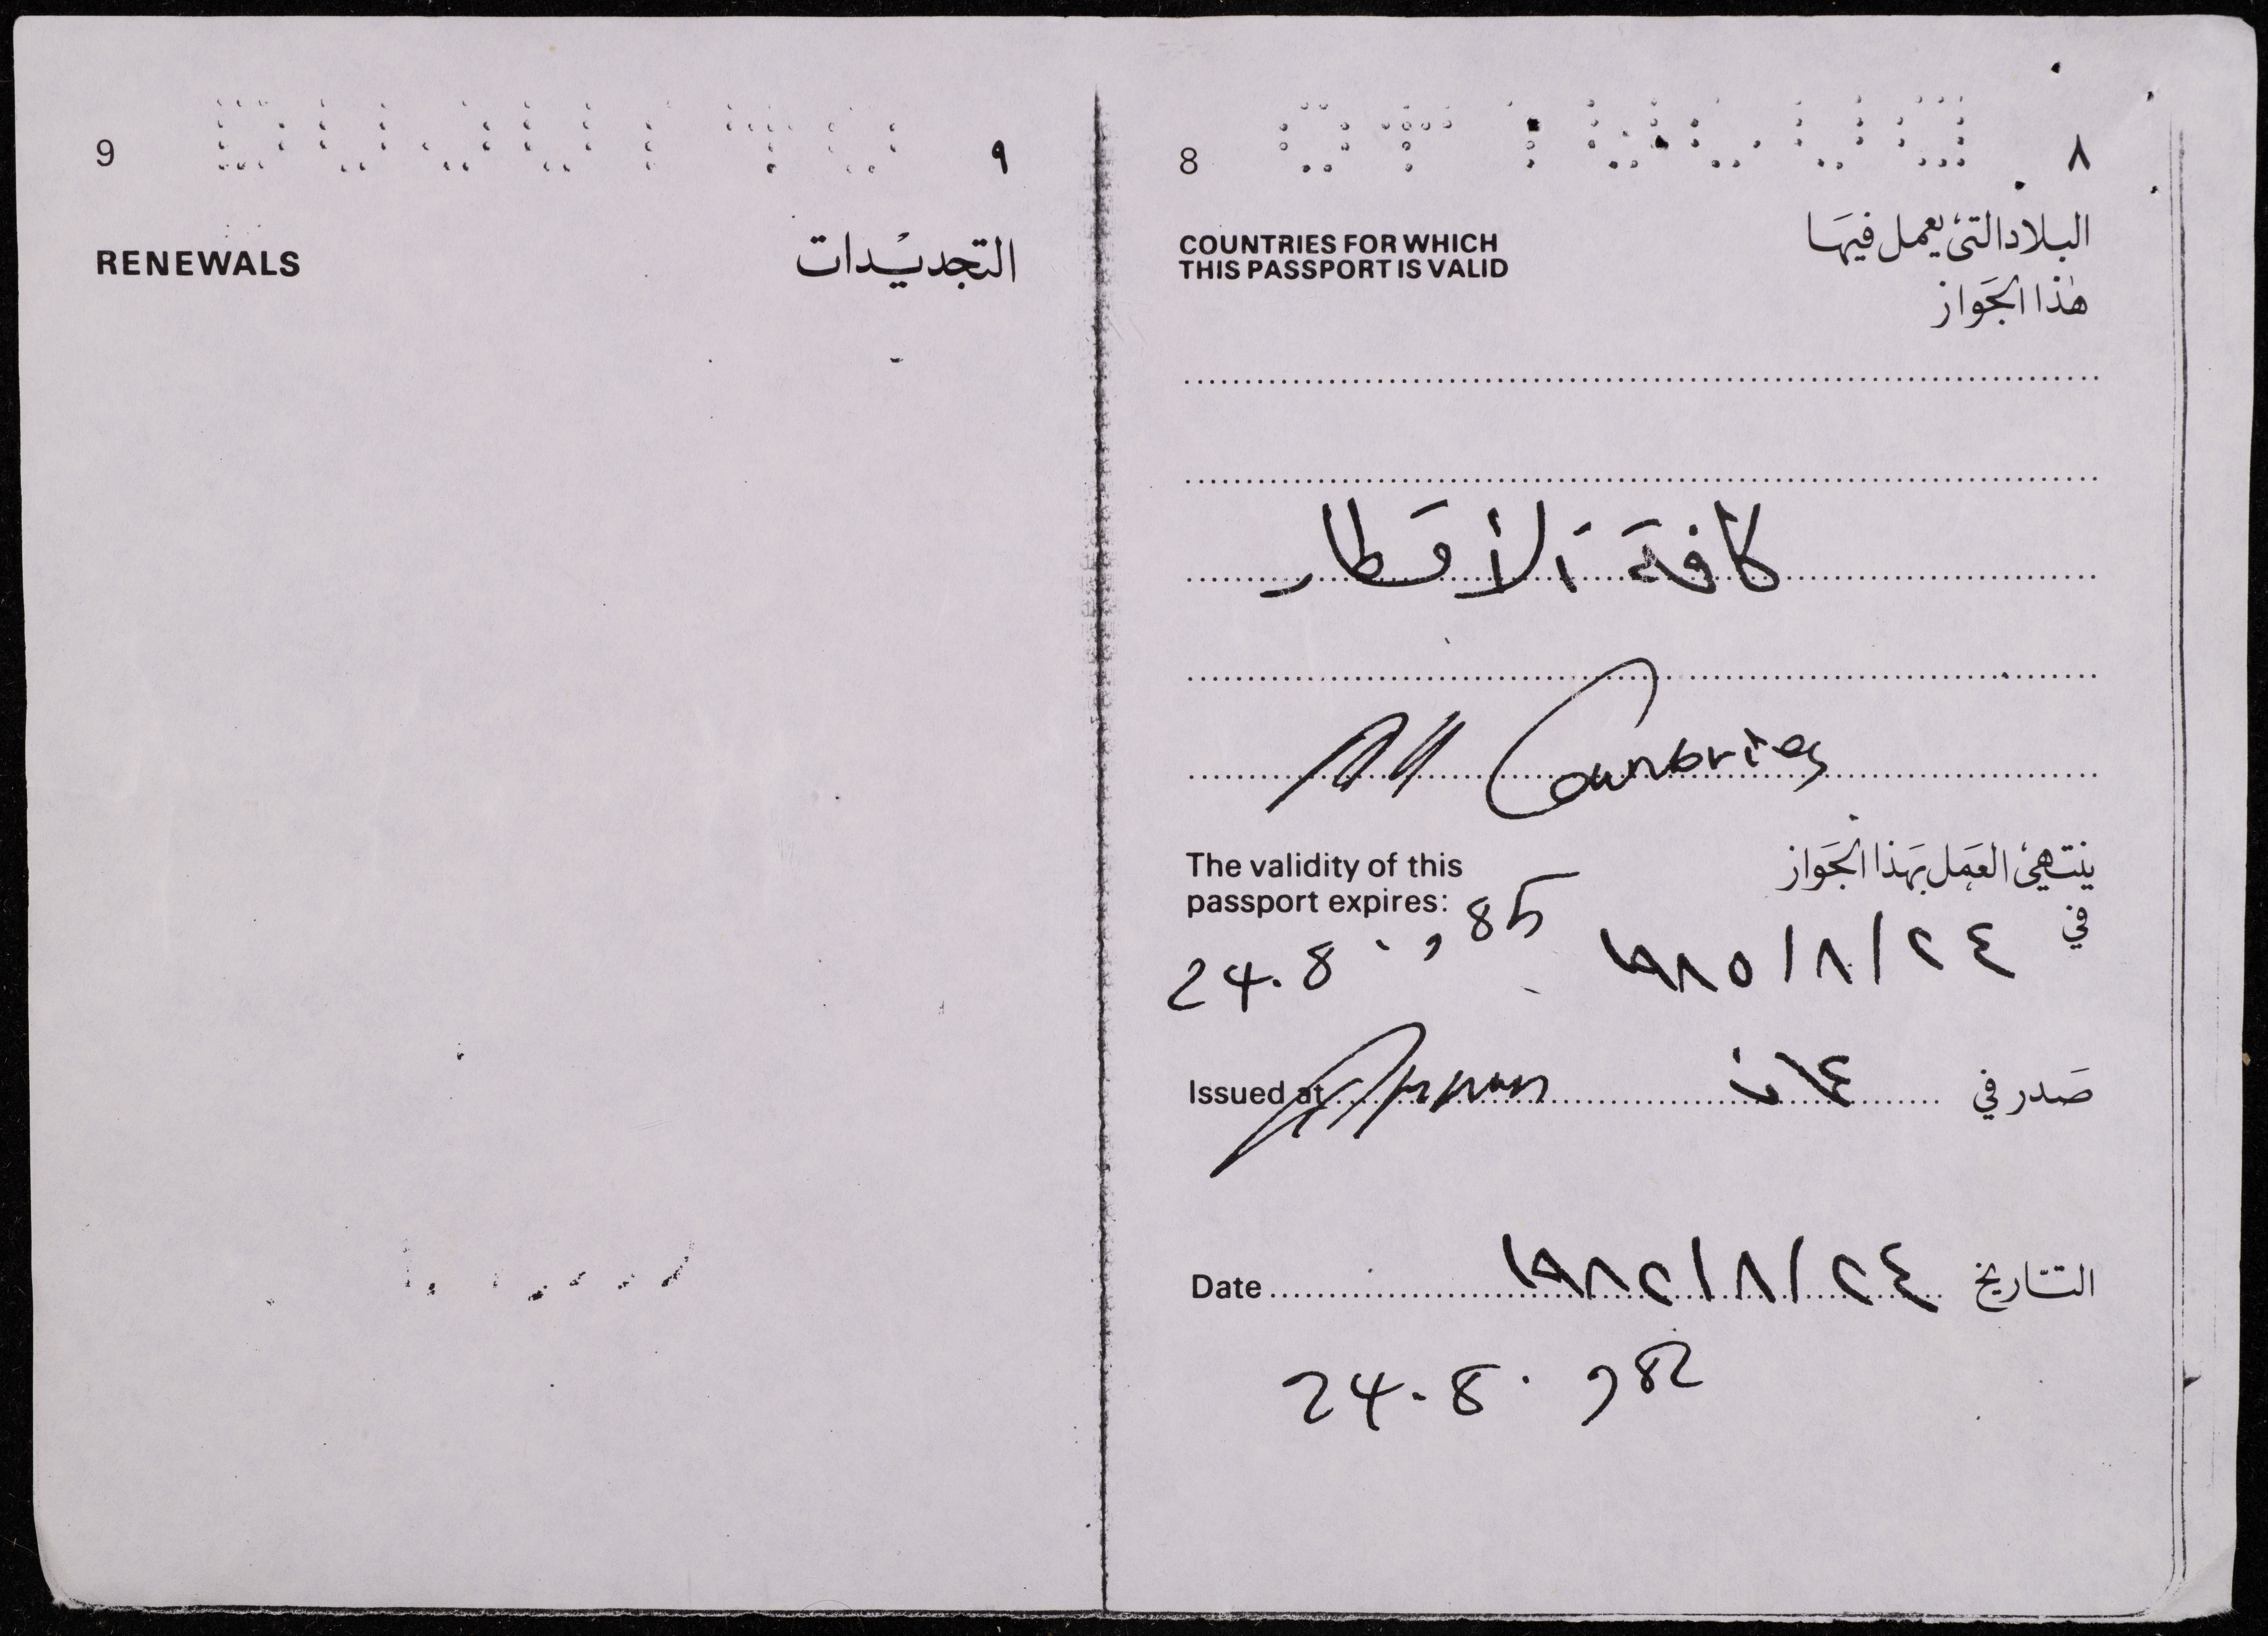 9
٩
RENEWALS
التجديدات
8
٨
COUNTRIES FOR WHICH
THIS PASSPORT IS VALID
البلاد التي يعمل فيها
هذا الجواز
كافة الأقطار
All Countries
The validity of this
passport expires:
ينتهي العمل بهذا الجواز
في
24.8.,985
١٩٨٥/٨/٢٤
Issued at Amman
صدر في عمان
Date
التاريخ ١٩٨٢/٨/٢٤
24.8.982